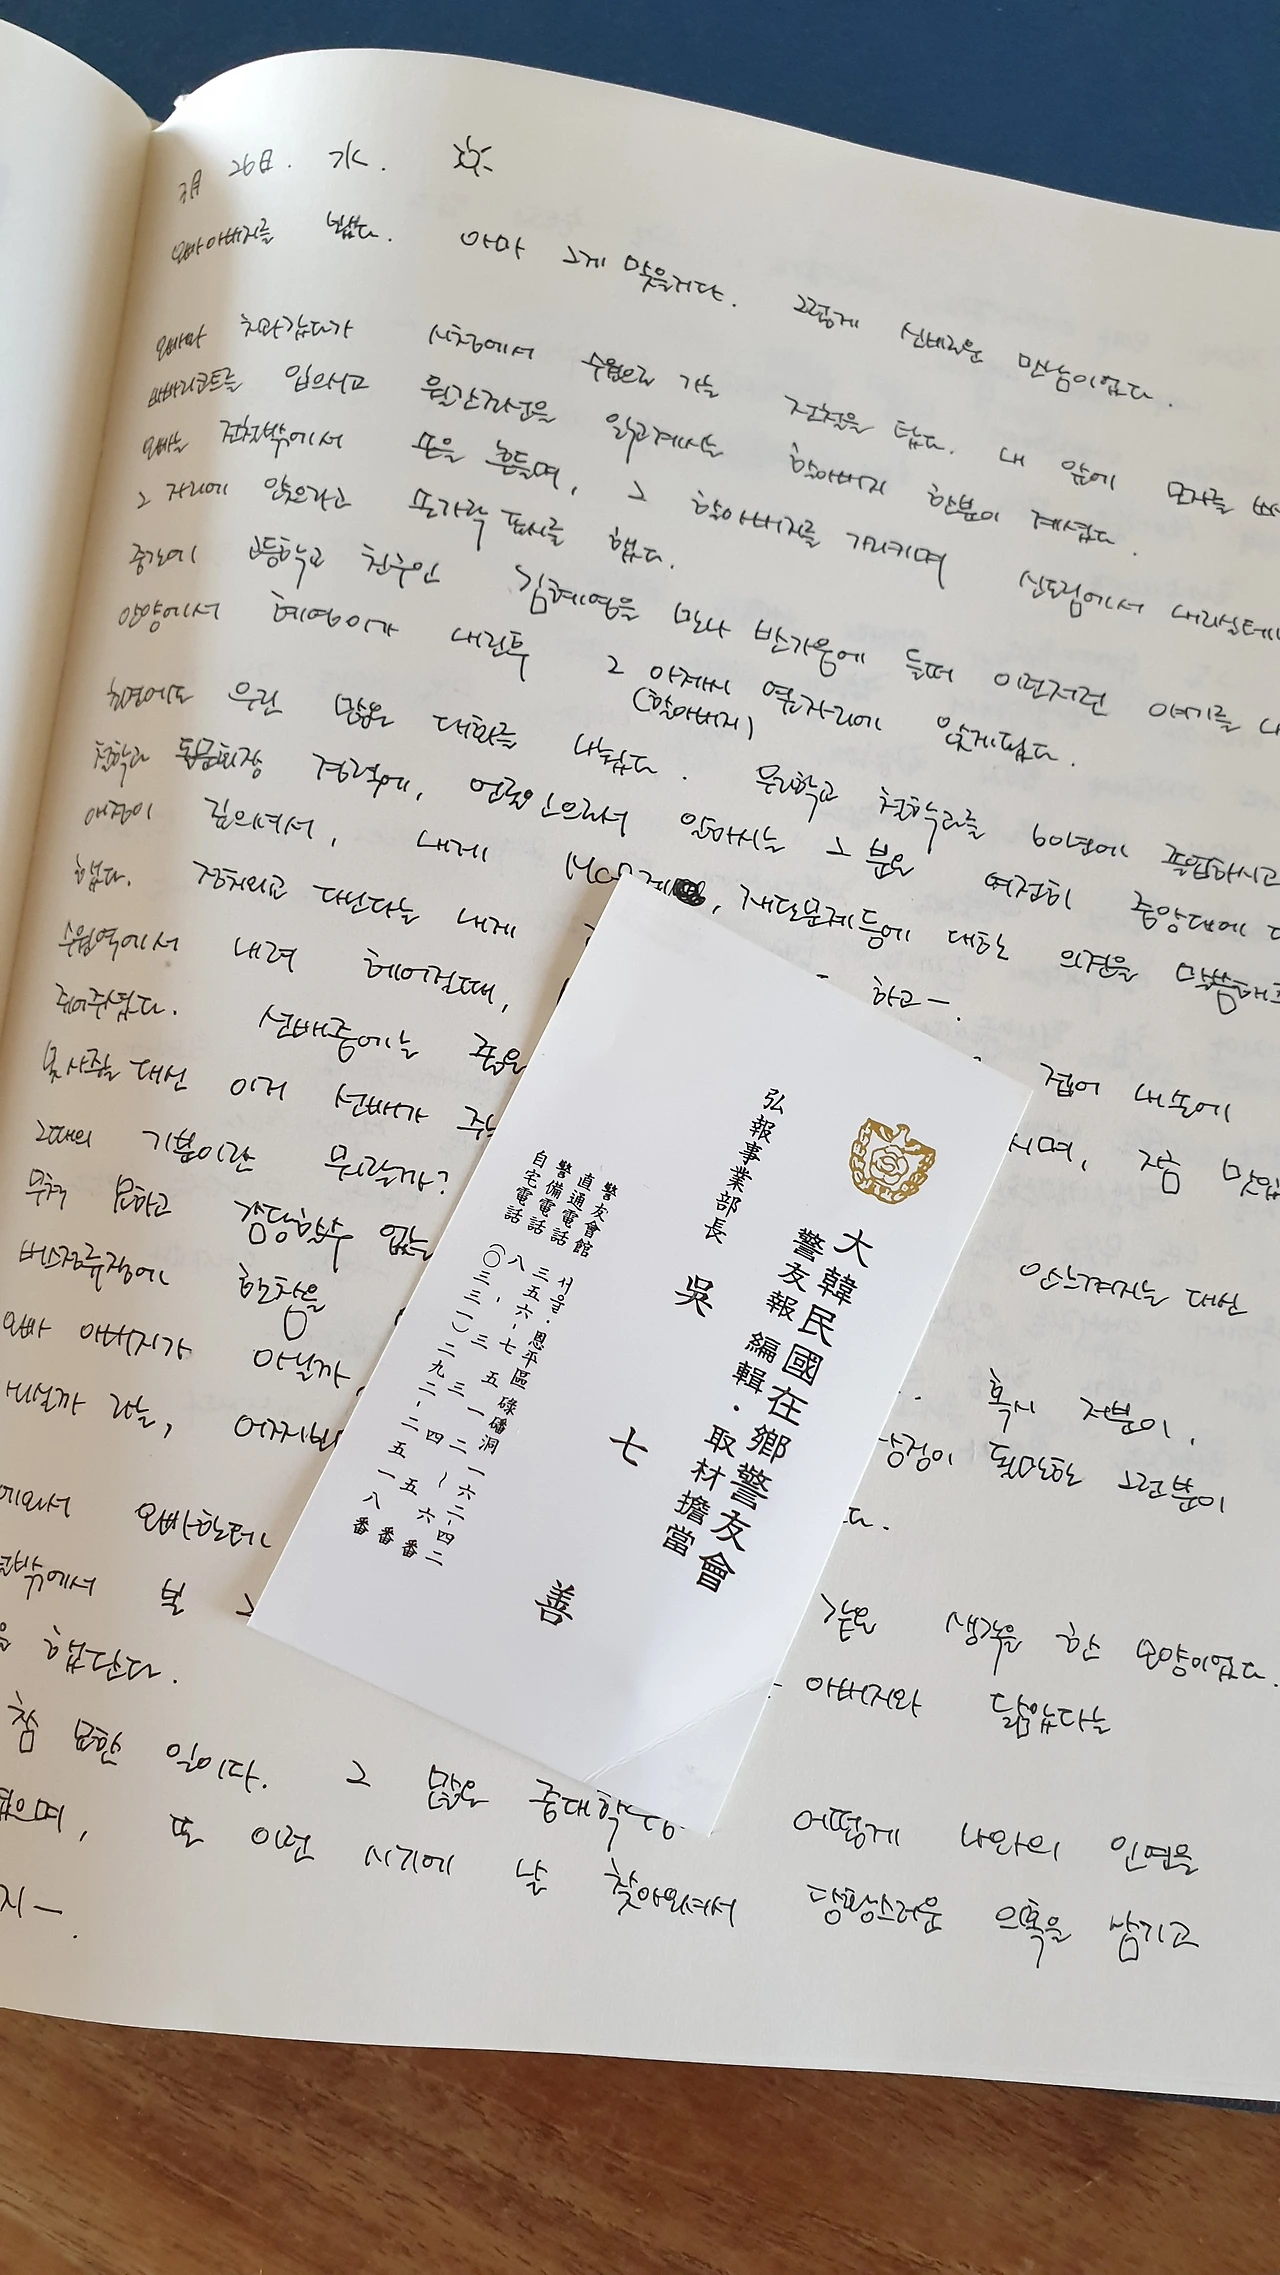 3月 26日. 水.
오빠아버지를 뵈었다. 아마 그게 맞을거다. 그렇게 신비로운 만남이었다.
오빠와 차마갔다가 시청에서 수원으로 가는 전철을 탔다. 내 앞에 모자를
바바리코트를 입으시고 월간조선을 읽고계시는 할아버지 한분이 계셨다.
오빠는 전철밖에서 손을 흔들며, 그 할아버지를 가리키며 신도림에서 내리실테니
그 자리에 앉으라고 손가락 표시를 했다.
중간에 고등학교 친구인 김혜영을 만나 반가움에 들떠 이런저런 얘기를
안양에서 혜영이가 내린후 그 아저씨 옆자리에 앉게됐다.
(할아버지)
초면에도 우린 많은 대화를 나눴다. 우리학교 철학과를 60년에 졸업하시고
철학과 동문회장 경력에, 언론인으로서 일하시는 그 분은 여전히 중앙대에
애정이 깊으셔서, 내게 재단문제등에 대한 의견을 말씀해주
했다. 정치외교 다닌다는 내게 하고—.
수원역에서 내려 헤어질때, 접어 내손에
쥐어주셨다. 선배중에는 좋은 시며, 지금
못사줄 대신 이거 선배가 주는
그때의 기분이란 뭐랄까? 안느껴지는 대신
무척 묘하고 감당할수 없는
버스정류장에 한참을 혹시 저분이,
오빠 아버지가 아닐까, 심정이 될만한 그런분이
아닐까 라는, 어처구니 다.
에와서 오빠한테 같은 생각을 한 모양이었다.
밖에서 본 그 아버지와 닮았다는
을 했단다.
참 묘한 일이다. 그 많은 중대학생 어떻게 나와의 인연을
으며, 또 이런 시기에 날 찾아오셔서 당황스러운 의혹을 남기고
지—.
大韓民國在鄕警友會
警友報 編輯·取材擔當
弘報事業部長 吳七善
警友會館 서울·恩平區 碌磻洞 一六二–四二
直通電話 三五六–七五三一二
警備電話 八–三三二四~五六番
自宅電話 (〇三三一)二九二–二五一八番